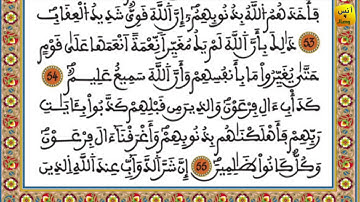 فَأَخَذَهُمُ اُللَّهُ بِذُنُوبِهِمُۥٓ إِنَّ اَللَّهَ قَوِيّٞ شَدِيدُ اُلْعِقَابِ
53 ذَٰلِكَ بِأَنَّ اَللَّهَ لَمْ يَكُ مُغَيِّراٗ نِّعْمَةً أَنْعَمَهَا عَلَىٰ قَوْمٍ
حَتَّىٰ يُغَيِّرُواْ مَا بِأَنفُسِهِمْ وَأَنَّ اَللَّهَ سَمِيعٌ عَلِيمٞ 54
كَدَأْبِ ءَالِ فِرْعَوْنَ وَالذِينَ مِن قَبْلِهِمْ كَذَّبُواْ بِـَٔايَٰتِ
رَبِّهِمْ فَأَهْلَكْنَٰهُم بِذُنُوبِهِمْ وَأَغْرَقْنَا ءَالَ فِرْعَوْنَ
وَكُلّٞ كَانُواْ ظَٰلِمِينَ 55 إِنَّ شَرَّ اَلدَّوَآبِّ عِندَ اَللَّهِ اِلذِينَ